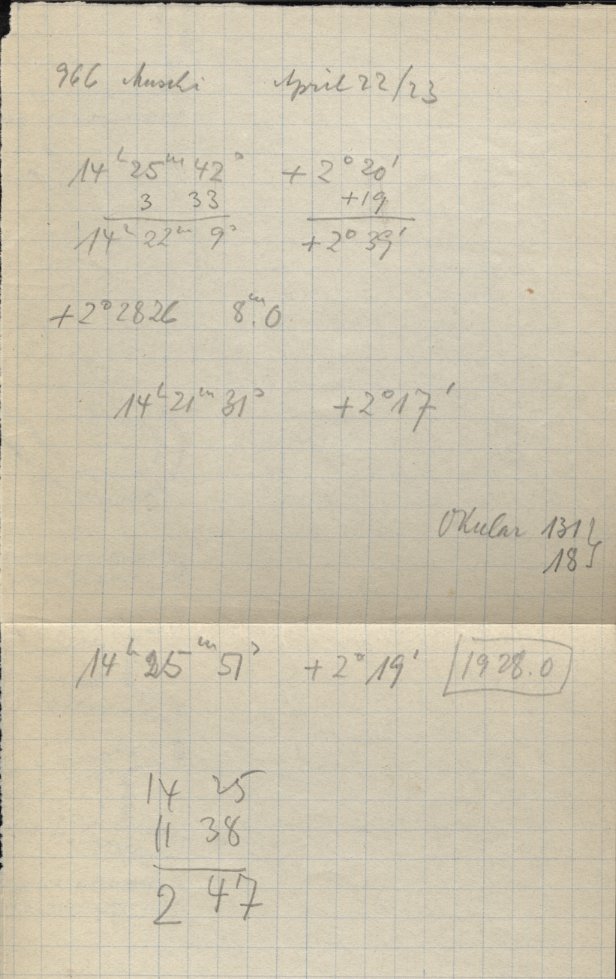 966 Muschi April 22/23
14ʰ 25ᵐ 42ˢ +2° 20'
3 33 +19
14ʰ 22ᵐ 9ˢ +2° 39'
+2° 2826 8ᵐ.0
14ʰ 21ᵐ 31ˢ +2° 17'
Okular 131}
18}
14ʰ 25ᵐ 51ˢ +2° 19' 1928.0
14 25
11 38
2 47